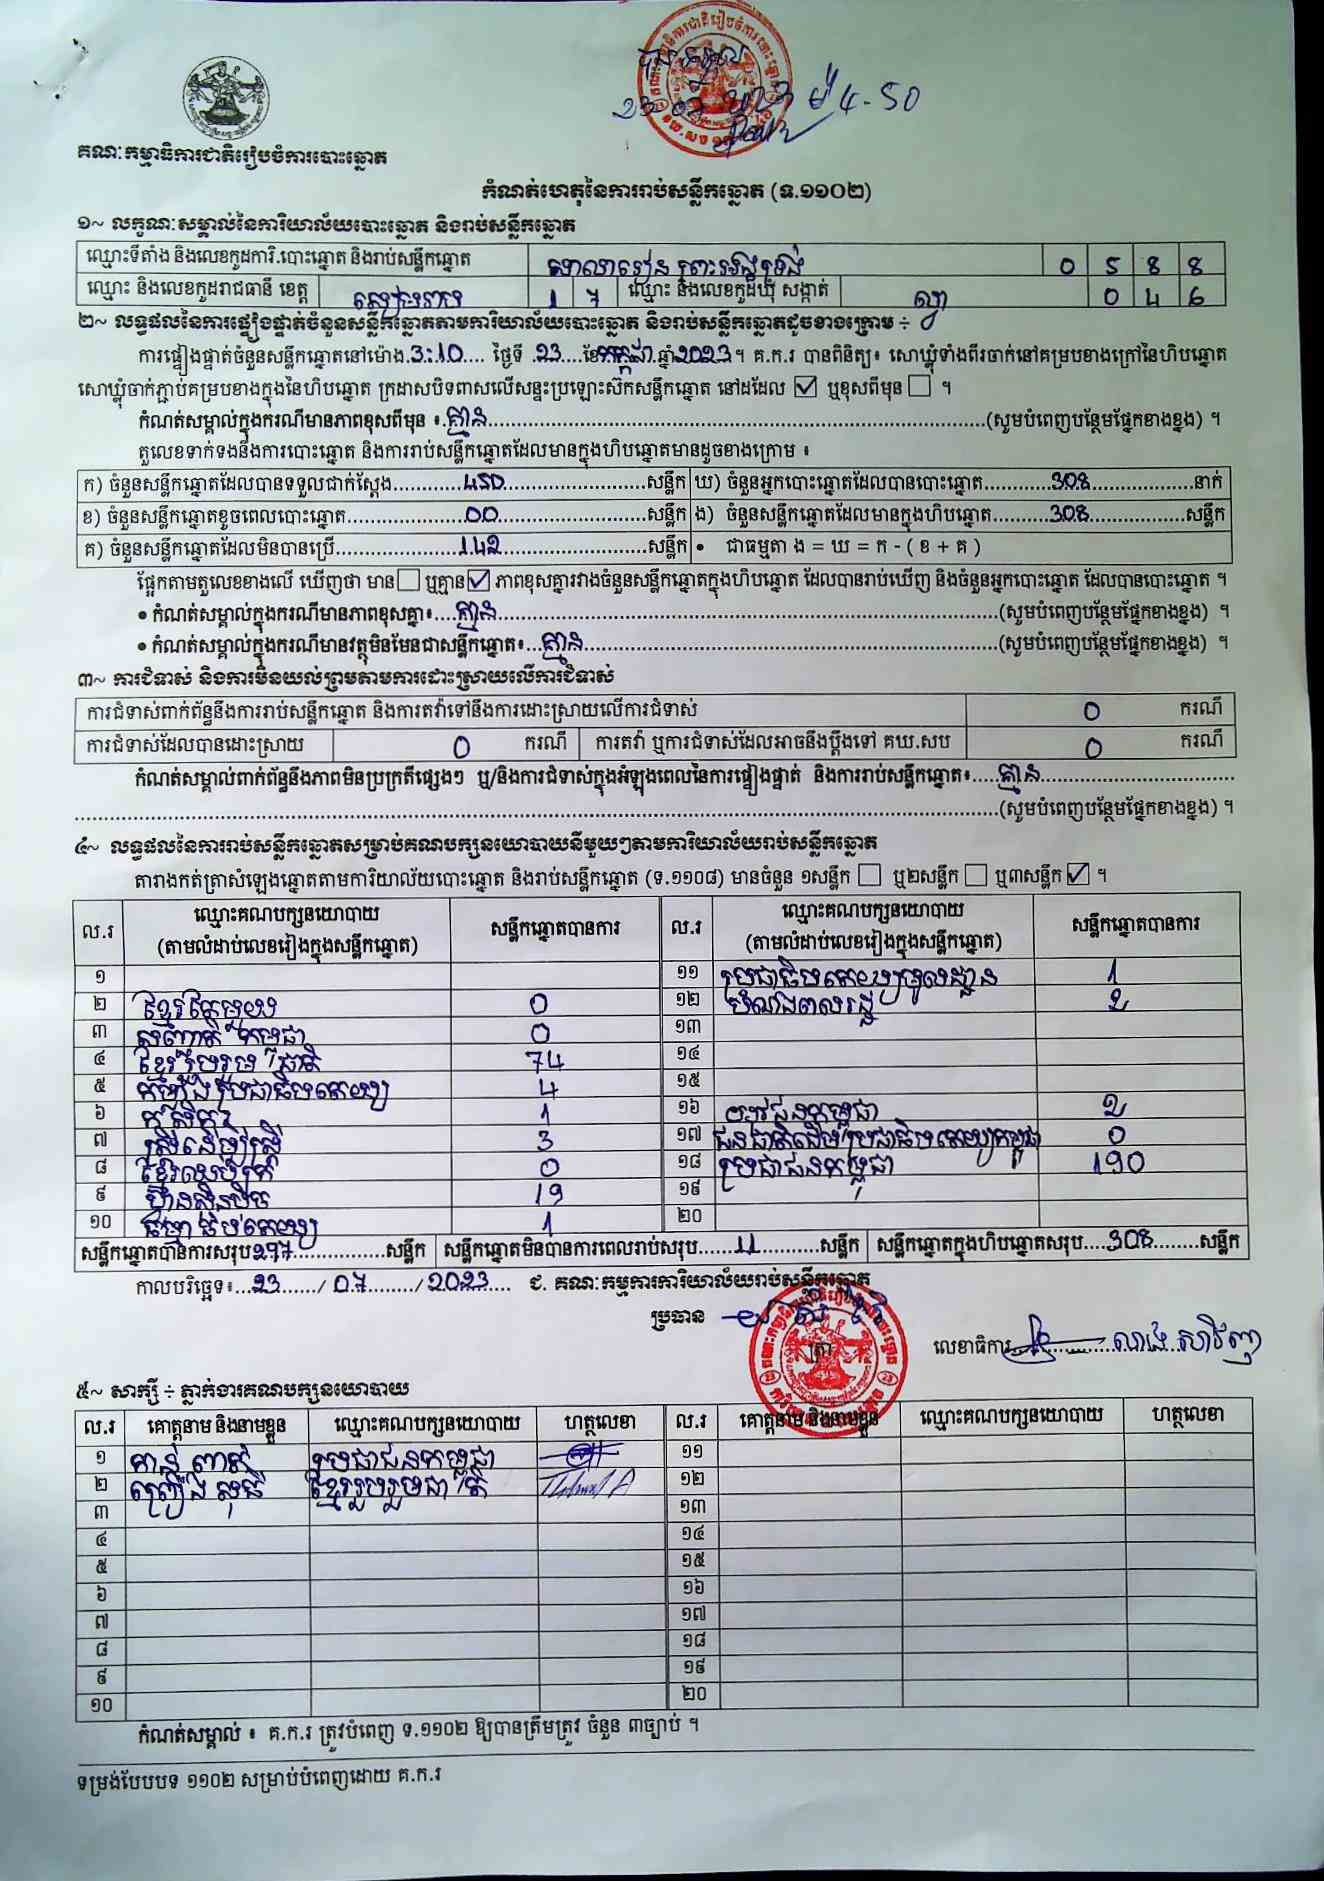 ម៉ 4-50
គណៈកម្មាធិការជាតិរៀបចំការបោះឆ្នោត
កំណត់ហេតុនៃការរាប់សន្លឹកឆ្នោត (ទ.១១០២)
១~ លក្ខណៈសម្គាល់នៃការិយាល័យបោះឆ្នោត និងរាប់សន្លឹកឆ្នោត
ឈ្មោះទីតាំង និងលេខកូដការិ.បោះឆ្នោត និងរាប់សន្លឹកឆ្នោត សាលារៀន 0 5 8 8
ឈ្មោះ និងលេខកូដរាជធានី ខេត្ត សៀមរាប 1 7 ឈ្មោះ និងលេខកូដឃុំ សង្កាត់ ល្វា 0 4 6
២~ លទ្ធផលនៃការផ្ទៀងផ្ទាត់ចំនួនសន្លឹកឆ្នោតតាមការិយាល័យបោះឆ្នោត និងរាប់សន្លឹកឆ្នោតដូចខាងក្រោម ÷
ការផ្ទៀងផ្ទាត់ចំនួនសន្លឹកឆ្នោតនៅម៉ោង.3:10.... ថ្ងៃទី .23....ខែកក្កដា ឆ្នាំ2023។ គ.ក.រ បានពិនិត្យ៖ សោឃ្លុំទាំងពីរចាក់នៅគម្របខាងក្រៅនៃហិបឆ្នោត
សោឃ្លុំចាក់ភ្ជាប់គម្របខាងក្នុងនៃហិបឆ្នោត ក្រដាសបិទពាសលើសន្ទះប្រឡោះស៊កសន្លឹកឆ្នោត នៅដដែល ☑ ឬខុសពីមុន ☐ ។
កំណត់សម្គាល់ក្នុងករណីមានភាពខុសពីមុន ៖.គ្មាន...(សូមបំពេញបន្ថែមផ្នែកខាងខ្នង) ។
តួលេខទាក់ទងនឹងការបោះឆ្នោត និងការរាប់សន្លឹកឆ្នោតដែលមានក្នុងហិបឆ្នោតមានដូចខាងក្រោម ៖
ក) ចំនួនសន្លឹកឆ្នោតដែលបានទទួលជាក់ស្តែង...450...សន្លឹក ឃ) ចំនួនអ្នកបោះឆ្នោតដែលបានបោះឆ្នោត...308...នាក់
ខ) ចំនួនសន្លឹកឆ្នោតខូចពេលបោះឆ្នោត...00...សន្លឹក ង) ចំនួនសន្លឹកឆ្នោតដែលមានក្នុងហិបឆ្នោត...308...សន្លឹក
គ) ចំនួនសន្លឹកឆ្នោតដែលមិនបានប្រើ...142...សន្លឹក • ជាធម្មតា ង = ឃ = ក - ( ខ + គ )
ផ្អែកតាមតួលេខខាងលើ ឃើញថា មាន☐ ឬគ្មាន☑ ភាពខុសគ្នារវាងចំនួនសន្លឹកឆ្នោតក្នុងហិបឆ្នោត ដែលបានរាប់ឃើញ និងចំនួនអ្នកបោះឆ្នោត ដែលបានបោះឆ្នោត ។
• កំណត់សម្គាល់ក្នុងករណីមានភាពខុសគ្នា៖...គ្មាន...(សូមបំពេញបន្ថែមផ្នែកខាងខ្នង) ។
• កំណត់សម្គាល់ក្នុងករណីមានវត្ថុមិនមែនជាសន្លឹកឆ្នោត៖...គ្មាន...(សូមបំពេញបន្ថែមផ្នែកខាងខ្នង) ។
៣~ ការជំទាស់ និងការមិនយល់ព្រមតាមការដោះស្រាយលើការជំទាស់
ការជំទាស់ពាក់ព័ន្ធនឹងការរាប់សន្លឹកឆ្នោត និងការតវ៉ាទៅនឹងការដោះស្រាយលើការជំទាស់ 0 ករណី
ការជំទាស់ដែលបានដោះស្រាយ 0 ករណី ការតវ៉ា ឬការជំទាស់ដែលអាចនឹងប្តឹងទៅ គឃ.សប 0 ករណី
កំណត់សម្គាល់ពាក់ព័ន្ធនឹងភាពមិនប្រក្រតីផ្សេងៗ ឬ/និងការជំទាស់ក្នុងអំឡុងពេលនៃការផ្ទៀងផ្ទាត់ និងការរាប់សន្លឹកឆ្នោត៖...គ្មាន...
...(សូមបំពេញបន្ថែមផ្នែកខាងខ្នង) ។
៤~ លទ្ធផលនៃការរាប់សន្លឹកឆ្នោតសម្រាប់គណបក្សនយោបាយនីមួយៗតាមការិយាល័យរាប់សន្លឹកឆ្នោត
តារាងកត់ត្រាសំឡេងឆ្នោតតាមការិយាល័យបោះឆ្នោត និងរាប់សន្លឹកឆ្នោត (ទ.១១០៨) មានចំនួន ១សន្លឹក ☐ ឬ២សន្លឹក ☐ ឬ៣សន្លឹក ☑ ។
ល.រ ឈ្មោះគណបក្សនយោបាយ (តាមលំដាប់លេខរៀងក្នុងសន្លឹកឆ្នោត) សន្លឹកឆ្នោតបានការ ល.រ ឈ្មោះគណបក្សនយោបាយ (តាមលំដាប់លេខរៀងក្នុងសន្លឹកឆ្នោត) សន្លឹកឆ្នោតបានការ
១ ១១ ប្រជាធិបតេយ្យមូលដ្ឋាន 1
២ ខ្មែរតែមួយ 0 ១២ បំណងពលរដ្ឋ 2
៣ សញ្ជាតិកម្ពុជា 0 ១៣
៤ ខ្មែររួបរួមជាតិ 74 ១៤
៥ កម្លាំងប្រជាធិបតេយ្យ 4 ១៥
៦ កសិករ 1 ១៦ យុវជនកម្ពុជា 2
៧ ស្រីដើម្បីស្រី 3 ១៧ ជនជាតិដើមប្រជាធិបតេយ្យកម្ពុជា 0
៨ ខ្មែរឈប់ក្រ 0 ១៨ ប្រជាជនកម្ពុជា 190
៩ ហ៊្វុនស៊ិនប៉ិច 19 ១៩
១០ ធម្មាធិបតេយ្យ 1 ២០
សន្លឹកឆ្នោតបានការសរុប297...សន្លឹក សន្លឹកឆ្នោតមិនបានការពេលរាប់សរុប...11...សន្លឹក សន្លឹកឆ្នោតក្នុងហិបឆ្នោតសរុប...308...សន្លឹក
កាលបរិច្ឆេទ៖...23....../ 07......../ 2023... ជ. គណៈកម្មការការិយាល័យរាប់សន្លឹកឆ្នោត
ប្រធាន
ត្រា
លេខាធិការ
៥~ សាក្សី ÷ ភ្នាក់ងារគណបក្សនយោបាយ
ល.រ គោត្តនាម និងនាមខ្លួន ឈ្មោះគណបក្សនយោបាយ ហត្ថលេខា ល.រ គោត្តនាម និងនាមខ្លួន ឈ្មោះគណបក្សនយោបាយ ហត្ថលេខា
១ ប្រជាជនកម្ពុជា ១១
២ ខ្មែររួបរួមជាតិ ១២
៣ ១៣
៤ ១៤
៥ ១៥
៦ ១៦
៧ ១៧
៨ ១៨
៩ ១៩
១០ ២០
កំណត់សម្គាល់ ៖ គ.ក.រ ត្រូវបំពេញ ទ.១១០២ ឱ្យបានត្រឹមត្រូវ ចំនួន ៣ច្បាប់ ។
ទម្រង់បែបបទ ១១០២ សម្រាប់បំពេញដោយ គ.ក.រ